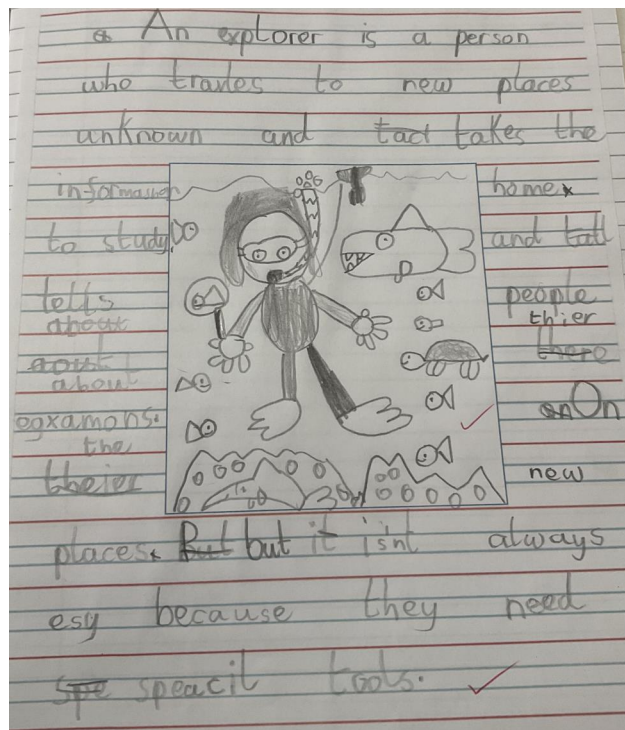 An explorer is a person
who travles to new places
unknown and tact takes the
information home
to study and tall
tells people
about thier
aout there
about
egxamons. on On
the
theier new
places. But but it isnt always
esy because they need
spe speacil tools.